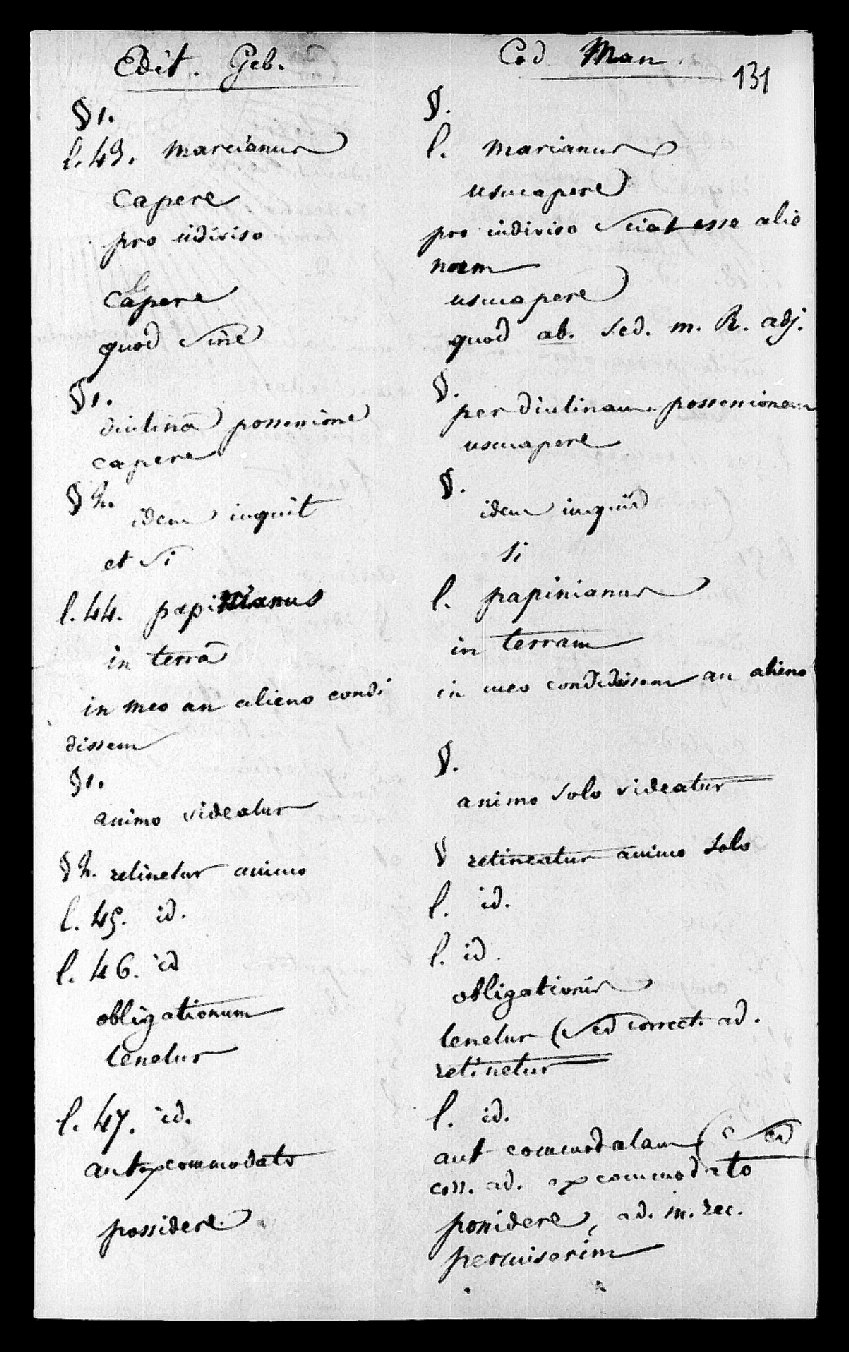 Edit. Geb.
Cod Man.
131
§ 1.
§.
l. 43. Marcianus
l. Marianus
capere
usucapere
pro indiviso
pro indiviso sciat esse alie
nam
capere
usucapere
quod sine
quod ab. sed. m. R. adj.
§ 1.
§.
diutina possessione
per diutinam possessionem
capere
usucapere
§ 2.
§.
idem inquit
idem inquid
et si
si
l. 44. papinianus
l. papinianus
in terra
in terram
in meo an alieno condi
in meo condidissem an alieno
dissem
§ 1.
§.
animo videatur
animo solo videatur
§ 2. retinetur animo
§ retineatur animo solo
l. 45. id.
l. id.
l. 46. id
l. id.
obligationum
obligationis
tenetur
tenetur (sed correct. ad.
retinetur
l. 47. id.
l. id.
aut commodato
aut commodatam (sed
corr. ad. ex commodato
possidere
possidere, ad. m. rec.